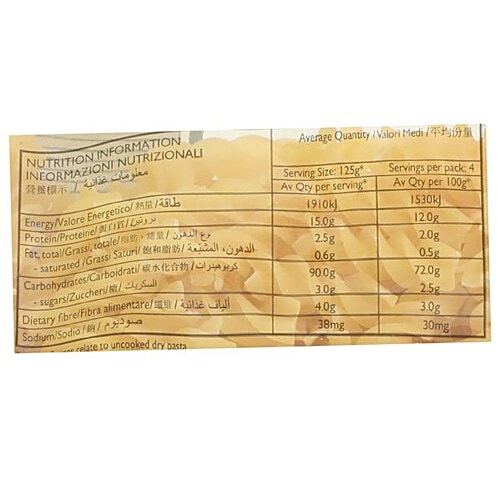 Average Quantity / Valori Medi / 平均份量
NUTRITION INFORMATION
INFORMAZIONI NUTRIZIONALI
營養標示 / معلومات غذائية
Serving Size: 125g* Servings per pack: 4
Av Qty per serving* Av Qty per 100g*
Energy/Valore Energetico/熱量/طاقة 1910kJ 1530kJ
Protein/Proteine/蛋白質/بروتين 15.0g 12.0g
Fat, total/Grassi, totale/脂肪，總量/الدهون، نوع 2.5g 2.0g
- saturated /Grassi Saturi/飽和脂肪/الدهون، المشبّعة 0.6g 0.5g
Carbohydrates/Carboidrati/碳水化合物/كربوهيدرات 90.0g 72.0g
- sugars/Zuccheri/糖/السكريات 3.0g 2.5g
Dietary fibre/Fibra alimentare/纖維/ألياف غذائية 4.0g 3.0g
Sodium/Sodio/鈉/صوديوم 38mg 30mg
relate to uncooked dry pasta